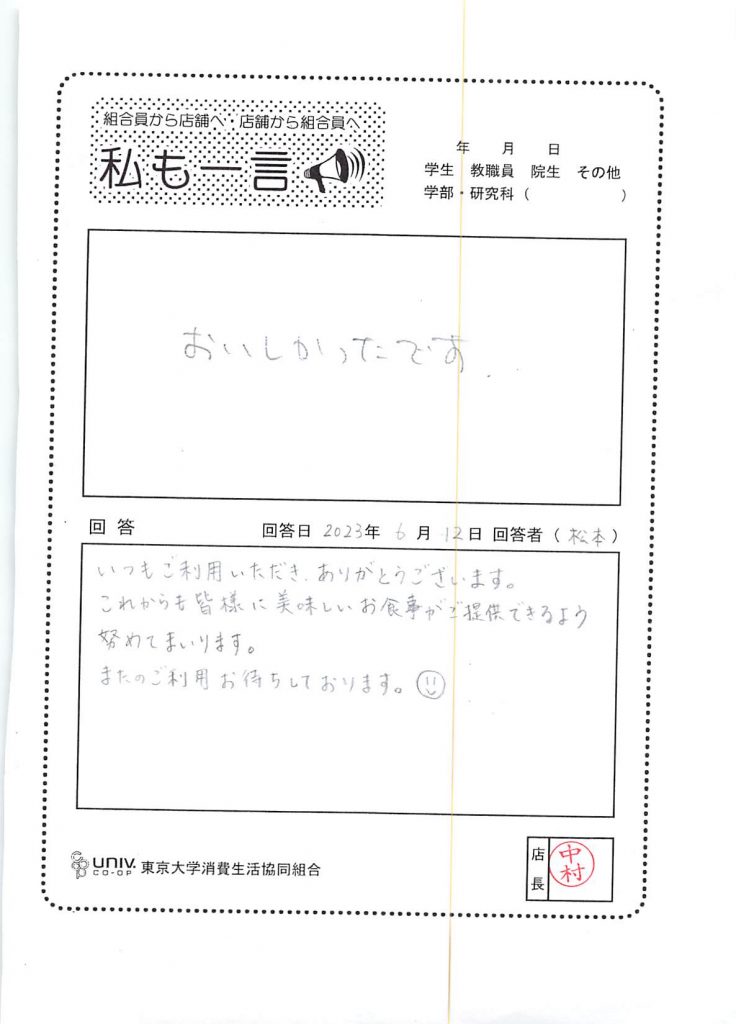 組合員から店舗へ・店舗から組合員へ
私も一言
年 月 日
学生 教職員 院生 その他
学部・研究科( )
おいしかったです.
回答 回答日 2023年 6月 12日 回答者(松本)
いつもご利用いただき、ありがとうございます。
これからも皆様に美味しいお食事がご提供できるよう
努めてまいります。
またのご利用お待ちしております。
店長
中村
CO-OP UNIV. CO-OP 東京大学消費生活協同組合